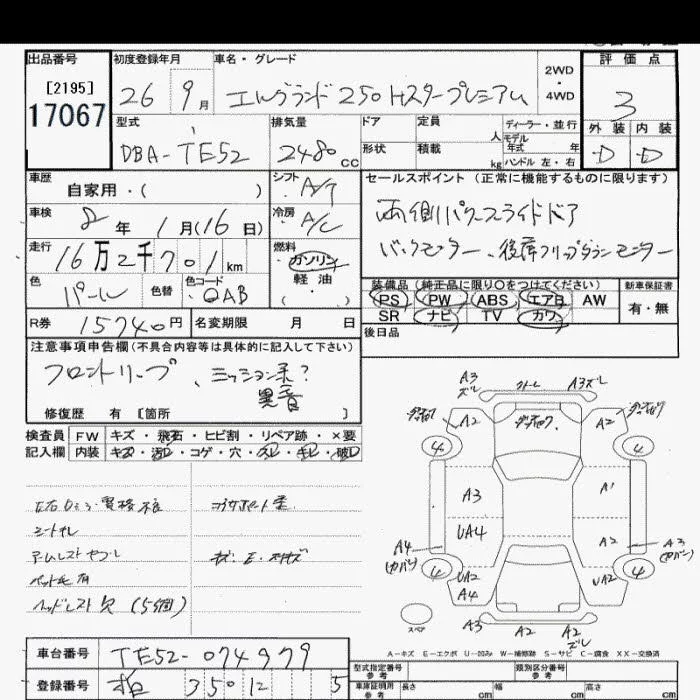 出品番号 初度登録年月 車名・グレード 2WD・4WD 評価点
[2195]
17067
26 9月 エルグランド250Hスタープレミアム 3
型式 排気量 ドア 定員 人 ディーラー・並行 外装 内装
モデル年式 年
DBA-TE52 2480cc 形状 積載 kg ハンドル 左・右 D D
車歴 シフト セールスポイント(正常に機能するものに限ります)
自家用・( ) A/T
両側パワースライドドア
車検 冷房
8年1月(16日) A/C
バックモニター、後席フリップダウンモニター
走行 燃料
16万2千701km ガソリン
軽油
( ・ )
色 色替 色コード 装備品(純正品に限り○をつけてください) 新車保証書
パール QAB PS PW ABS エアB AW 有・無
SR ナビ TV カワ
R券 15740円 名変期限 月 日 後日品
注意事項申告欄(不具合内容等は具体的に記入して下さい)
フロントリップ、ミッション系?
異音
修復歴 有 [箇所 ]
検査員 FW キズ・飛石・ヒビ割・リペア跡・×要
記入欄 内装 キズ・汚れ・コゲ・穴・スレ・キレ・破れ
シートスレ
ヘッドレスト欠(5個)
A3 A3スレ
A2 A2
4 4
A3 A1
UA4 A2
A4 A3
(カバン) (カバン)
4 4
UA2 UA2
A4
スペア A3 A2 A2
スレ
A-キズ E-エクボ U-凹み W-補修跡 S-サビ C-腐食 XX-交換済
車台番号 TE52-074979
型式指定番号 参考 類別区分番号 参考
登録番号 350 12 5
車庫証明用 参考 長さ cm 幅 cm 高さ cm